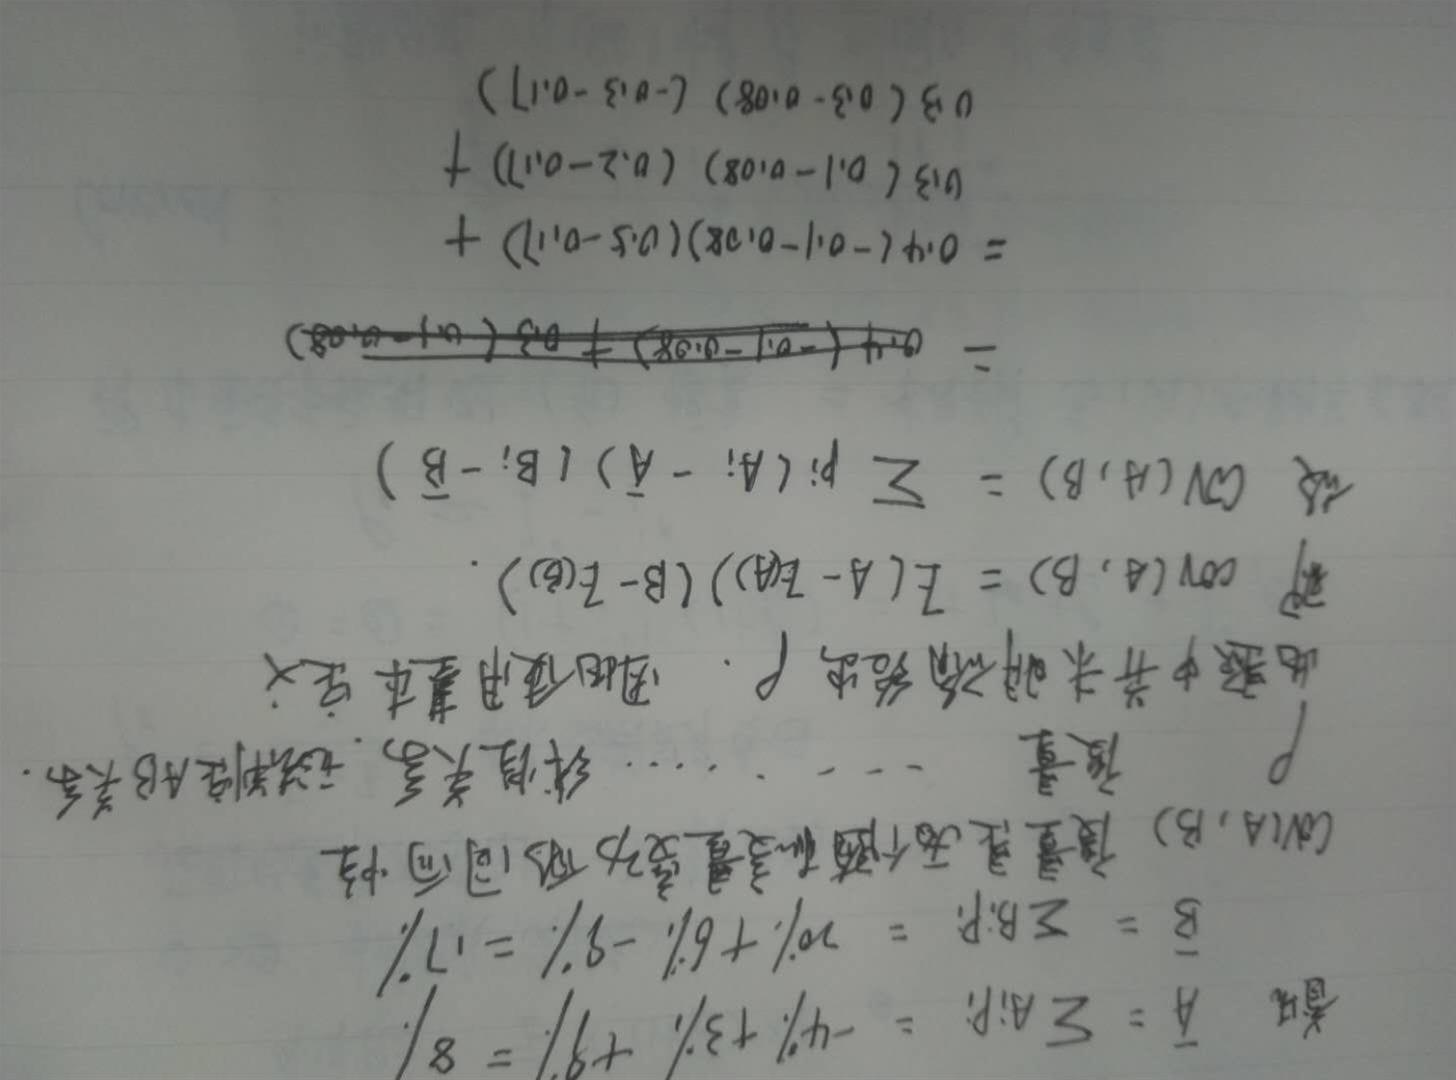 首先 Ā = ΣAiPi = -4% + 3% + 9% = 8%
B̄ = ΣBiPi = 20% + 6% - 9% = 17%
COV(A,B) 度量是两个随机变量变动的同向性
ρ 度量 ---...... 线性关系. 无法判定AB关系.
此题中并未明确给出 ρ. 因此使用基本定义
即 COV(A,B) = E(A-E(A))(B-E(B)).
故 COV(A,B) = Σ Pi(Ai-Ā)(Bi-B̄)
= 0.4(-0.1-0.08) + 0.3(0.1-0.08)
= 0.4(-0.1-0.08)(0.5-0.17) +
0.3(0.1-0.08)(0.2-0.17) +
0.3(0.3-0.08)(-0.3-0.17)